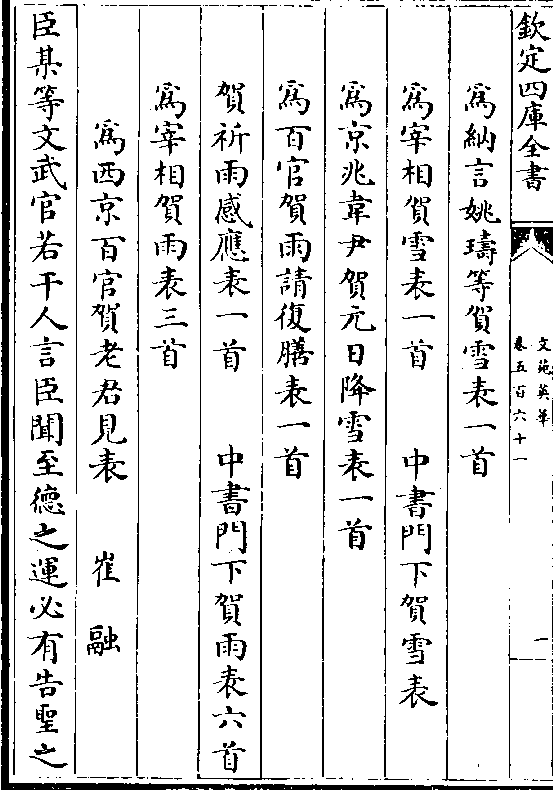 欽定四庫全書
文苑英華
卷五百六十一
一
爲納言姚璹等賀雪表一首
爲宰相賀雪表一首　中書門下賀雪表
爲京兆韋尹賀元日降雪表一首
爲百官賀雨請復膳表一首
賀祈雨感應表一首　中書門下賀雨表六首
爲宰相賀雨表三首
爲西京百官賀老君見表　崔融
臣某等文武官若干人言臣聞至德之運必有告聖之